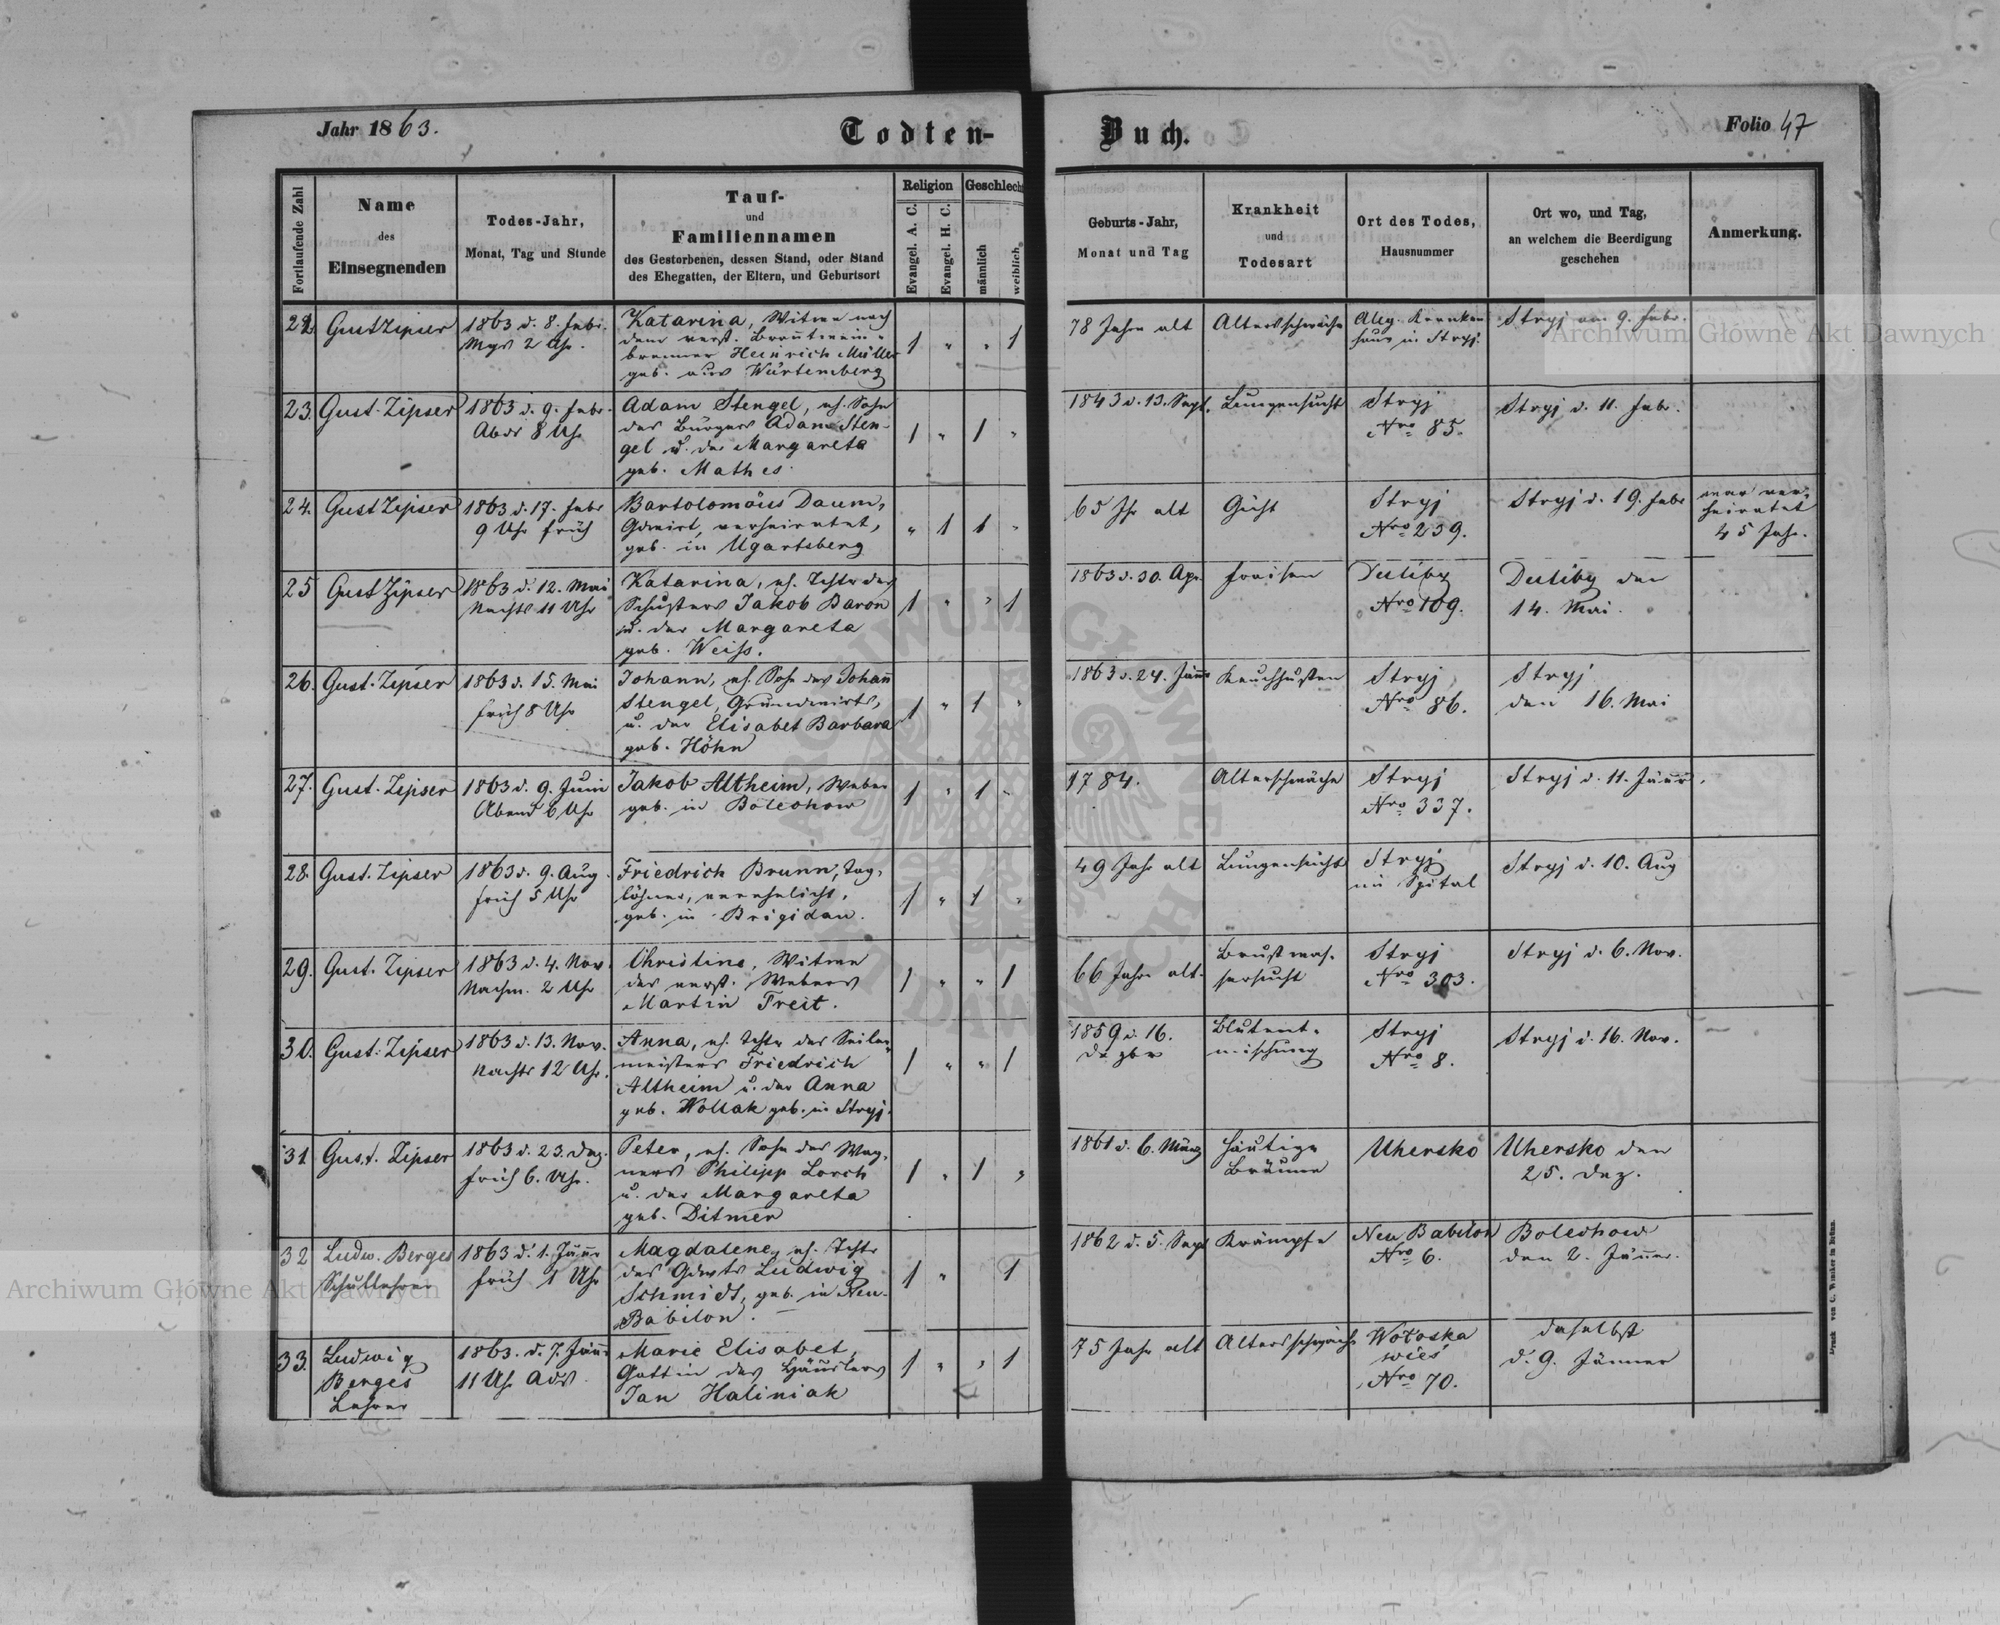 Jahr 1863.
Todten-Buch.
Folio 47
Fortlaufende Zahl
Name
des
Einsegnenden
Todes-Jahr,
Monat, Tag und Stunde
Tauf-
und
Familiennamen
des Gestorbenen, dessen Stand, oder Stand
des Ehegatten, der Eltern, und Geburtsort
Religion
Evangel. A. C.
Evangel. H. C.
Geschlecht
männlich
weiblich
Geburts-Jahr,
Monat und Tag
Krankheit
und
Todesart
Ort des Todes,
Hausnummer
Ort wo, und Tag,
an welchem die Beerdigung
geschehen
Anmerkung.
22. Gust Zipser
1863 d. 8. Febr.
Mgs 2 Uhr.
Katarina, Witwe nach
dem verst. Brantwein-
brenner Heinrich Müller
geb. aus Würtemberg
1 " " 1
78 Jahre alt
Altersschwäche
Allg. Kranken
haus in Stryj.
Stryj am 9. Febr.
23. Gust. Zipser
1863 d. 9. Febr.
Abds 8 Uhr
Adam Stengel, eh. Sohn
des Bürgers Adam Sten-
gel u. der Margareta
geb. Mathes.
1 " 1 "
1843 d. 13. Sept.
Lungensucht
Stryj
Nro 85.
Stryj d. 11. Febr.
24. Gust Zipser
1863 d. 17. Febr
9 Uhr früh
Bartolomäus Daum,
Gdwirt, verheiratet,
geb. in Ugartsberg
" 1 1 "
65 Jhr alt
Gicht
Stryj
Nro 239.
Stryj d. 19. Febr
war ver-
heiratet
45 Jahr.
25 Gust Zipser
1863 d. 12. Mai
Nachts 11 Uhr
Katarina, eh. Tchtr des
Schusters Jakob Baron
u. der Margareta
geb. Weiss.
1 " " 1
1863 d. 30. Apr.
Fraisen
Duliby
Nro 109.
Duliby den
14. Mai.
26. Gust. Zipser
1863 d. 15. Mai
früh 8 Uhr
Johann, eh. Sohn des Johann
Stengel, Grundwirts,
u. der Elisabet Barbara
geb. Höhn
1 " 1 "
1863 d. 24. Jänn
Keuchhusten
Stryj
Nro 86.
Stryj
den 16. Mai
27. Gust. Zipser
1863 d. 9. Juni
Abend 6 Uhr
Jakob Altheim, Weber
geb. in Bolechow
1 " 1 "
1784.
Alterschwäche
Stryj
Nro 337.
Stryj d. 11. Jänn.
28. Gust. Zipser
1863 d. 9. Aug.
früh 5 Uhr
Friedrich Brunn, Tag-
löhner, verehelicht,
geb. in Brigidau.
1 " 1 "
49 Jahr alt
Lungensucht
Stryj
im Spital
Stryj d. 10. Aug
29. Gust. Zipser
1863 d. 4. Nov.
Nachm. 2 Uhr
Christine, Witwe
des verst. Webers
Martin Treit.
1 " " 1
66 Jahre alt.
Brustwas-
sersucht
Stryj
Nro 303.
Stryj d. 6. Nov.
30. Gust. Zipser
1863 d. 13. Nov.
Nachts 12 Uhr.
Anna, eh. Tchtr des Seiler-
meisters Friedrich
Altheim u. der Anna
geb. Wollak geb. in Stryj.
1 " " 1
1859 d. 16.
Dezbr
Blutent-
mischung
Stryj
Nro 8.
Stryj d. 16. Nov.
31. Gust. Zipser
1863 d. 23. Dez.
früh 6. Uhr.
Peter, eh. Sohn des Wag-
ners Philipp Lorch
u. der Margareta
geb. Ditmer
1 " 1 "
1861 d. 6. März
häutige
Bräune
Uhersko
Uhersko den
25. Dez.
32 Ludw. Berges
Schullehrer
1863 d. 1. Jänn
früh 1 Uhr
Magdalene, eh. Tchtr
des Gdwts Ludwig
Schmidt, geb. in Neu-
Babilon.
1 " 1
1862 d. 5. Sept
Krämpfe
Neu Babilon
Nro 6.
Bolechow
den 2. Jänner.
33. Ludwig
Berges
Lehrer
1863. d. 7. Jänn
11 Uhr Abds
Marie Elisabet,
Gattin des Häuslers
Jan Haliniak
1 " " 1
75 Jahr alt
Altersschwäche
Wołoska
wieś
Nro 70.
daselbst
d. 9. Jänner
Archiwum Główne Akt Dawnych
Archiwum Główne Akt Dawnych
ARCHIWUM GŁÓWNE AKT DAWNYCH